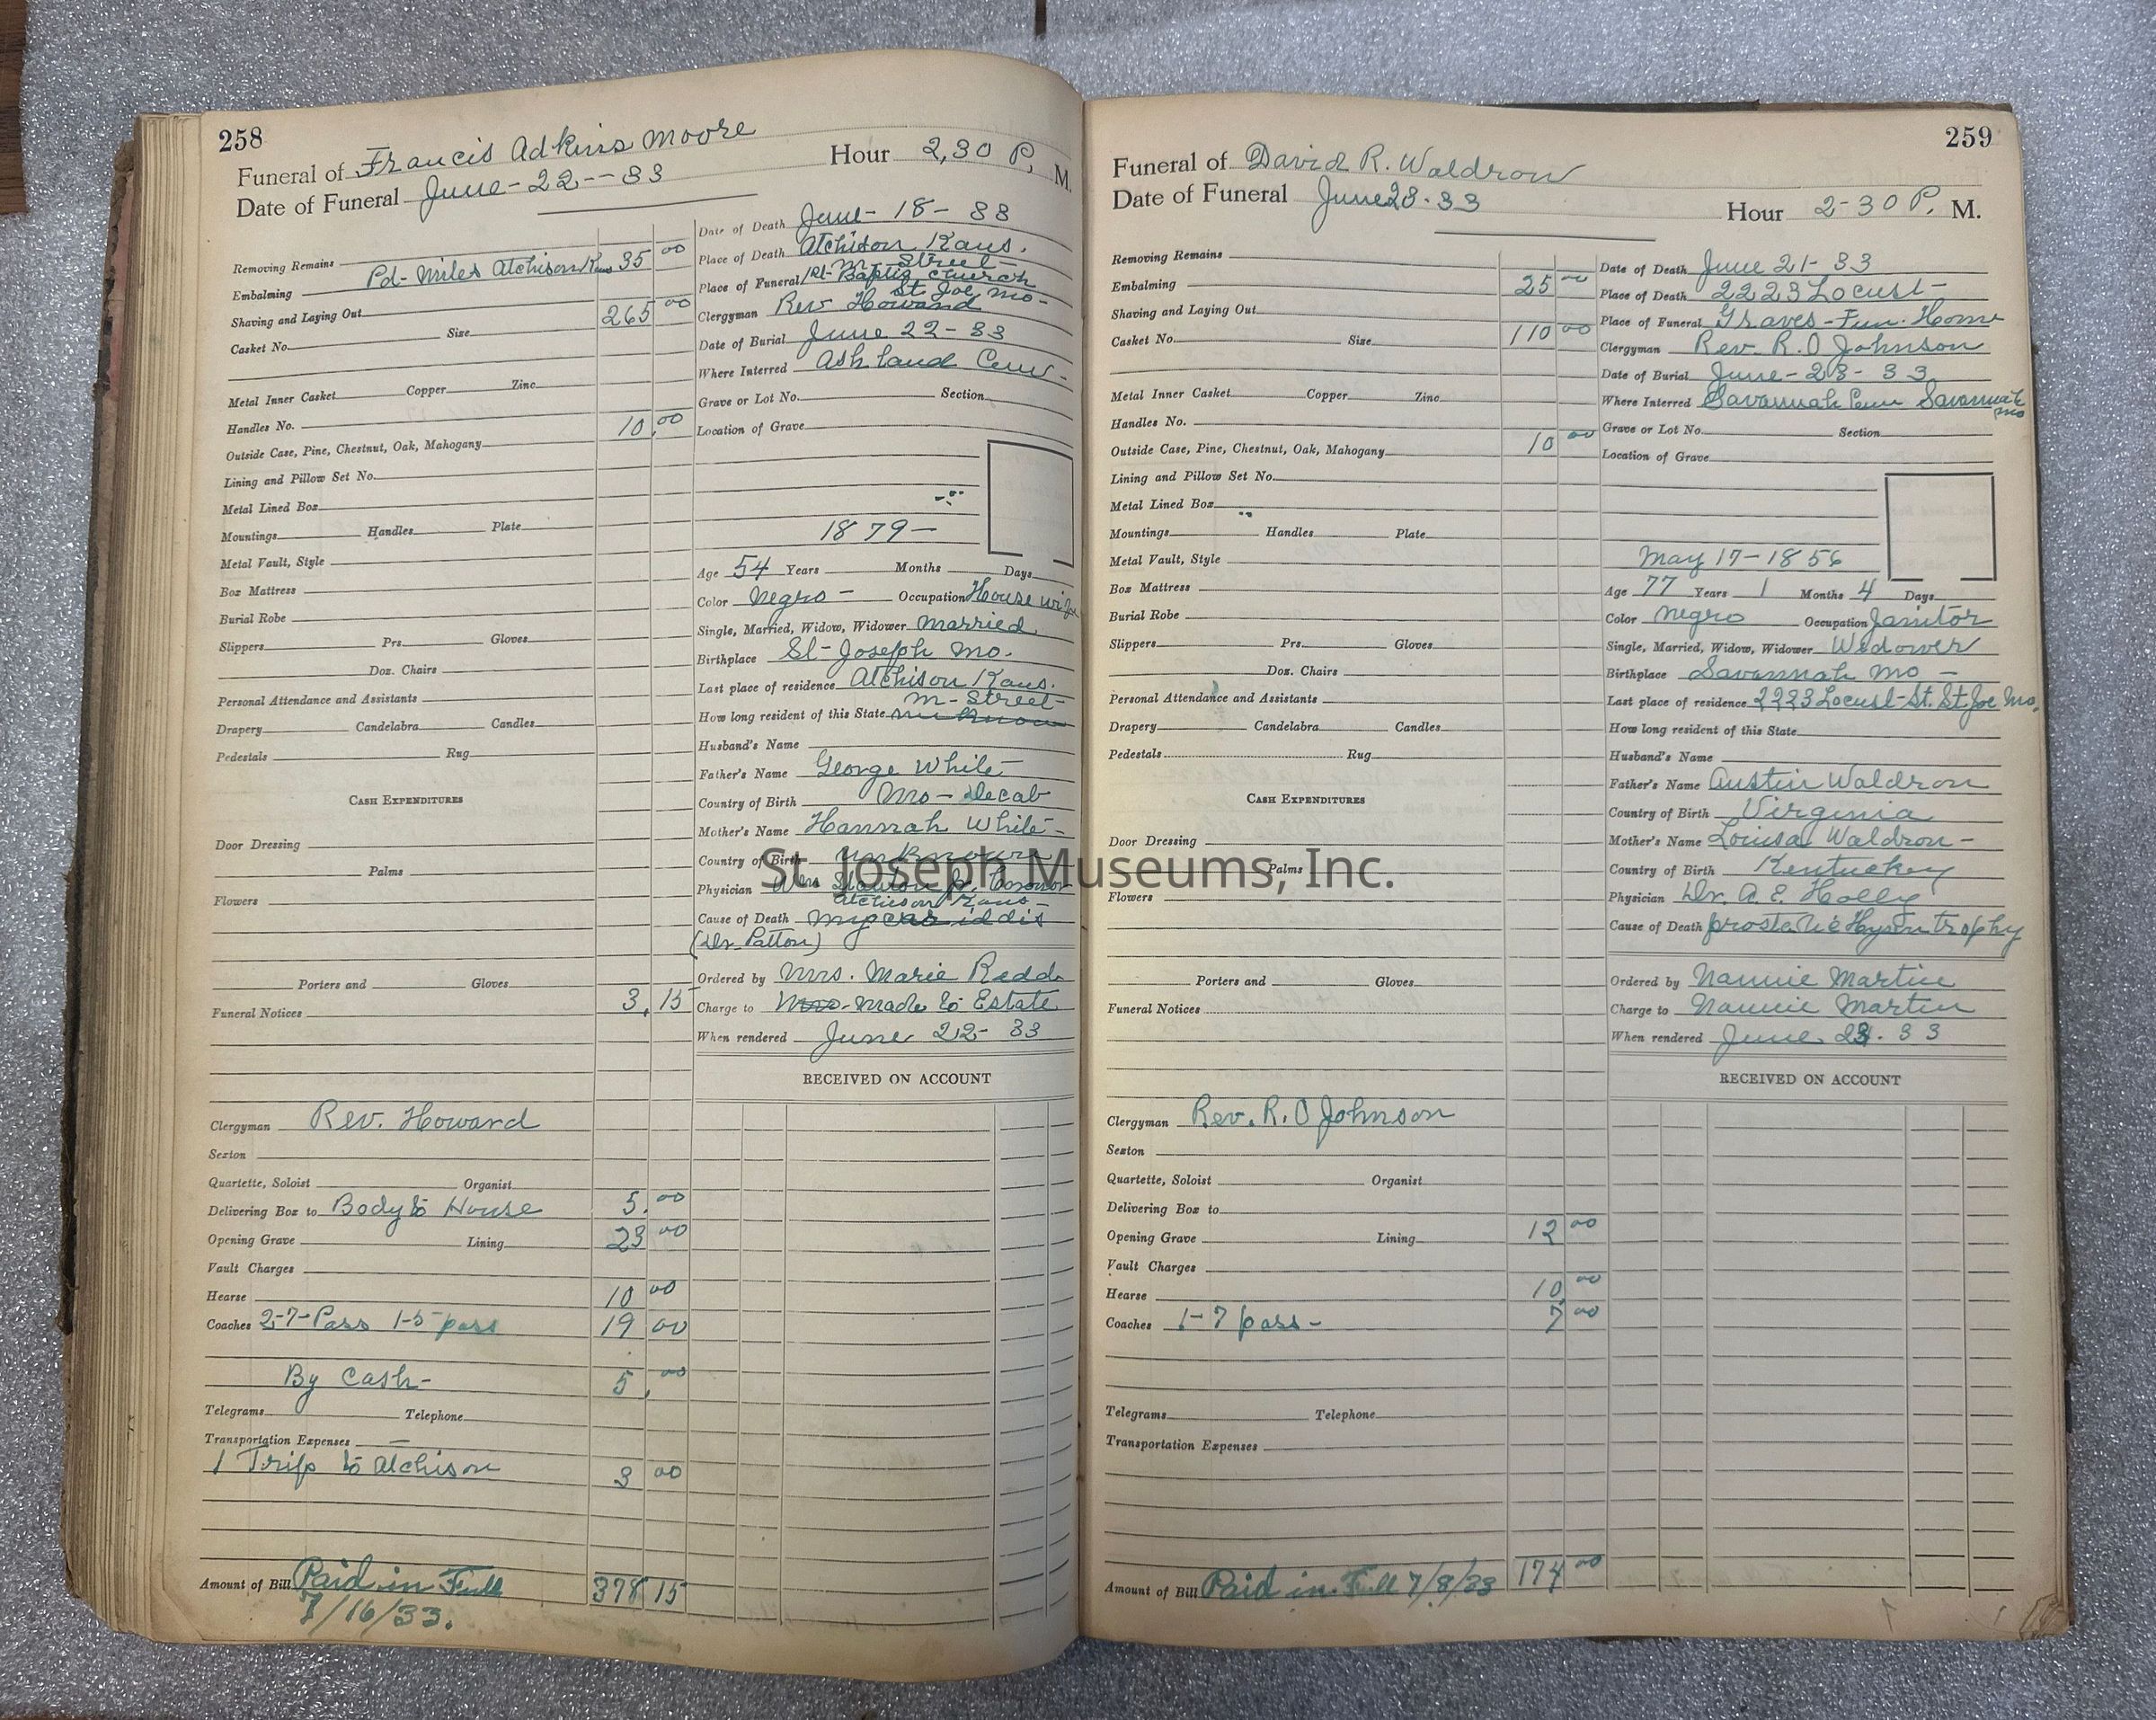 258
Funeral of Francis Adkins Moore
Hour 2,30 P. M.
Date of Funeral June-22--33
Removing Remains
Embalming Pd- Miles Atchison Kans 35 00
Shaving and Laying Out
Casket No. Size 265 00
Metal Inner Casket Copper Zinc
Handles No.
Outside Case, Pine, Chestnut, Oak, Mahogany 10,00
Lining and Pillow Set No.
Metal Lined Box
Mountings Handles Plate
Metal Vault, Style
Box Mattress
Burial Robe
Slippers Prs. Gloves
Doz. Chairs
Personal Attendance and Assistants
Drapery Candelabra Candles
Pedestals Rug
CASH EXPENDITURES
Door Dressing
Palms
Flowers
Porters and Gloves
Funeral Notices 3,15
Clergyman Rev. Howard
Sexton
Quartette, Soloist Organist
Delivering Box to Body to House 5.00
Opening Grave Lining 23 00
Vault Charges
Hearse 10 00
Coaches 2-7-Pass 1-5 pass 19 00
By Cash- 5,00
Telegrams Telephone
Transportation Expenses
1 Trip to Atchison 3 00
Amount of Bill Paid in Full 378 15
7/16/33.
Date of Death June-18-33
Place of Death Atchison Kans.
M- Street-
Place of Funeral 1st- Baptis Church
St. Joe, Mo-
Clergyman Rev Howard
Date of Burial June 22-33
Where Interred Ashland Cem-
Grave or Lot No. Section
Location of Grave
1879-
Age 54 Years Months Days
Color Negro- Occupation House wife
Single, Married, Widow, Widower Married
Birthplace St- Joseph Mo.
Last place of residence Atchison Kans.
M-Street-
How long resident of this State unknown
Husband's Name
Father's Name George White
Country of Birth Mo- Decab
Mother's Name Hannah White-
Country of Birth unknown
Physician Wm Jr. Coronor
Atchison Kans-
Cause of Death
(Dr. Patton)
Ordered by Mrs. Marie Redd
Charge to Mrs- Made to Estate
When rendered June 22- 33
RECEIVED ON ACCOUNT
259
Funeral of David R. Waldron
Date of Funeral June 23.33
Hour 2-30 P. M.
Removing Remains
Embalming 25 00
Shaving and Laying Out
Casket No. Size 110 00
Metal Inner Casket Copper Zinc
Handles No.
Outside Case, Pine, Chestnut, Oak, Mahogany 10 00
Lining and Pillow Set No.
Metal Lined Box
Mountings Handles Plate
Metal Vault, Style
Box Mattress
Burial Robe
Slippers Prs. Gloves
Doz. Chairs
Personal Attendance and Assistants
Drapery Candelabra Candles
Pedestals Rug
CASH EXPENDITURES
Door Dressing
Palms
Flowers
Porters and Gloves
Funeral Notices
Clergyman Rev. R. O Johnson
Sexton
Quartette, Soloist Organist
Delivering Box to
Opening Grave Lining 12 00
Vault Charges
Hearse 10.00
Coaches 1-7 pass- 7 00
Telegrams Telephone
Transportation Expenses
Amount of Bill Paid in Full 7/8/33 174 00
Date of Death June 21-33
Place of Death 2223 Locust-
Place of Funeral Graves-Fun. Home
Clergyman Rev. R. O Johnson
Date of Burial June-23-33
Where Interred Savannah Cem Savannah
Mo
Grave or Lot No. Section
Location of Grave
May 17-1856
Age 77 Years 1 Months 4 Days
Color Negro Occupation Janitor
Single, Married, Widow, Widower Widower
Birthplace Savannah Mo-
Last place of residence 2223 Locust-St. St. Joe Mo.
How long resident of this State
Husband's Name
Father's Name Austin Waldron
Country of Birth Virginia
Mother's Name Louisa Waldron-
Country of Birth Kentuckey
Physician Dr. A. E. Holly
Cause of Death
Ordered by Nannie Martin
Charge to Nannie Martin
When rendered June. 23. 33
RECEIVED ON ACCOUNT
St. Joseph Museums, Inc.